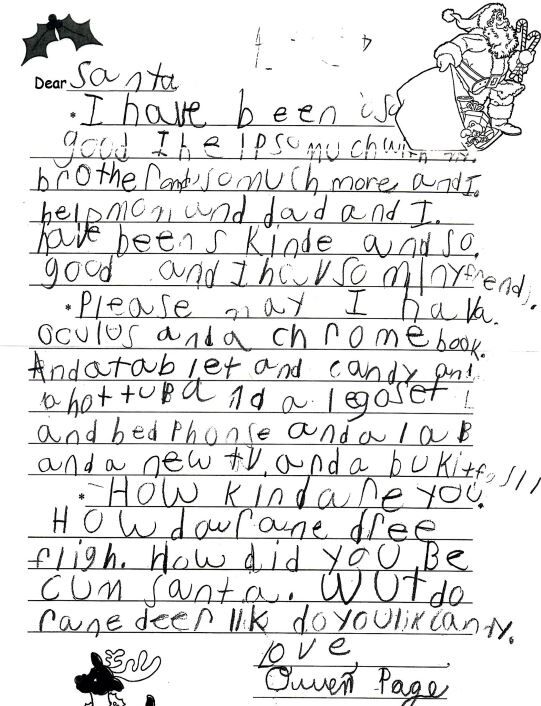 Dear Santa
I have been so
good I helpsomuch with my
brother andsomuch more and I.
help mom and dad and I.
have been s kinde and so.
good and I hav so miny friends.
Please may I hava.
oculus and a chrome book.
And a tablet and candy and
a hot tub a nd a legoset
and hed phonse and a lab
and a new tv, and a bukit foll
How kind are you.
How dow rane dree
fligh. How did you Be
cum santa. wut do
rane deer lik do you lik candy.
love,
Owen Page